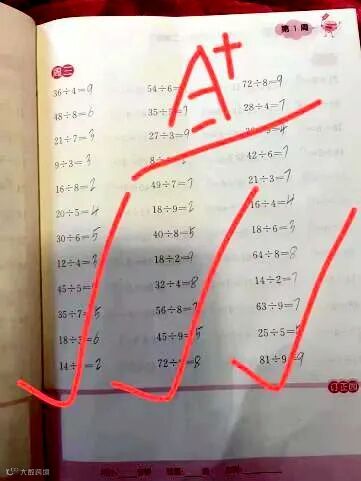 第1周
周三
A+
36÷4=9 54÷6= 72÷8=9
48÷8=6 35÷ 28÷4=7
21÷7=3 27÷3=9
9÷3=3 42÷6=7
16÷8=2 49÷7=7 21÷3=7
20÷5=4 18÷9=2 16÷4=4
30÷6=5 40÷8=5 18÷6=3
12÷4=3 18÷2=9 64÷8=8
45÷5= 32÷4=8 14÷2=7
35÷7=5 56÷8=7 63÷9=7
18÷3=6 45÷9=5 25÷5=5
14÷ =2 72÷ =8 81÷9=9
订正四